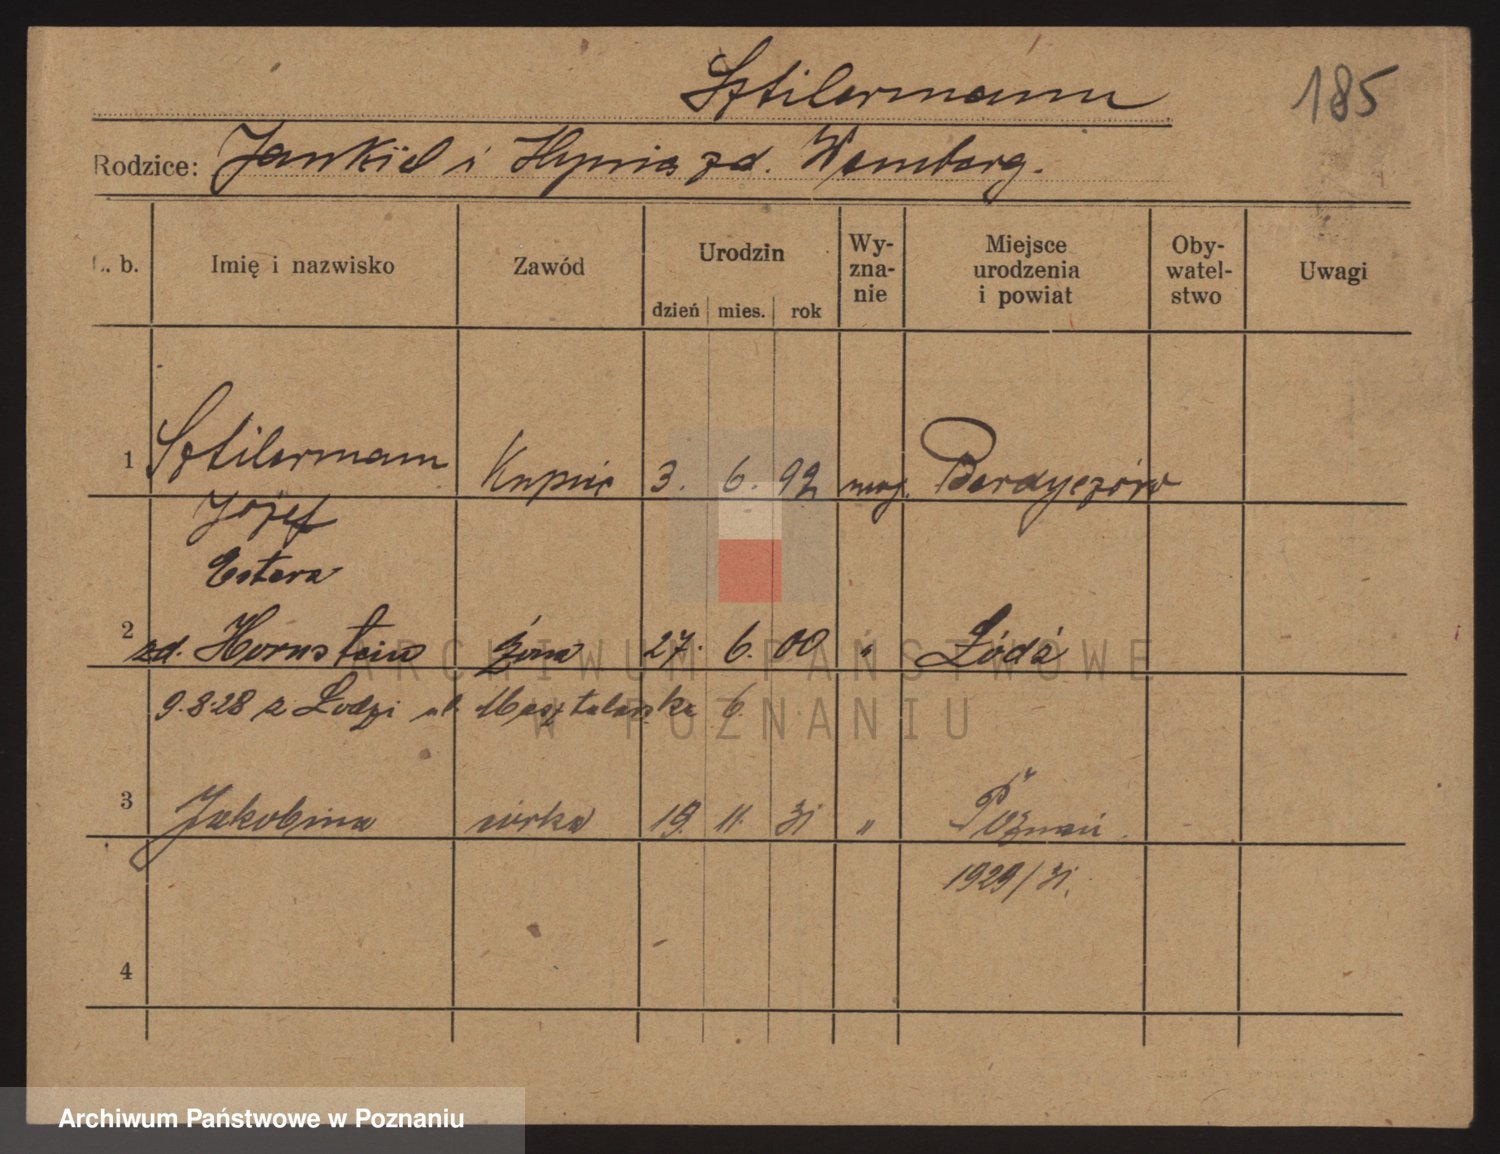 Sztilermann
185
Rodzice: Jankiel i Hynia zd. Wamberg.
L. b.
Imię i nazwisko
Zawód
Urodzin
dzień mies. rok
Wy-
zna-
nie
Miejsce
urodzenia
i powiat
Oby-
watel-
stwo
Uwagi
1 Sztilermann Kupiec 3. 6. 92 mojż. Berdyczów
Józef
Estera
2 zd. Hornstein żona 27. 6. 00 " Łódź
9.8.28 z Łodzi ul. Masztalarska 6.
3 Jakobina córka 19. 11. 31 " Poznań
1929/31.
4
ARCHIWUM PAŃSTWOWE
W POZNANIU
Archiwum Państwowe w Poznaniu